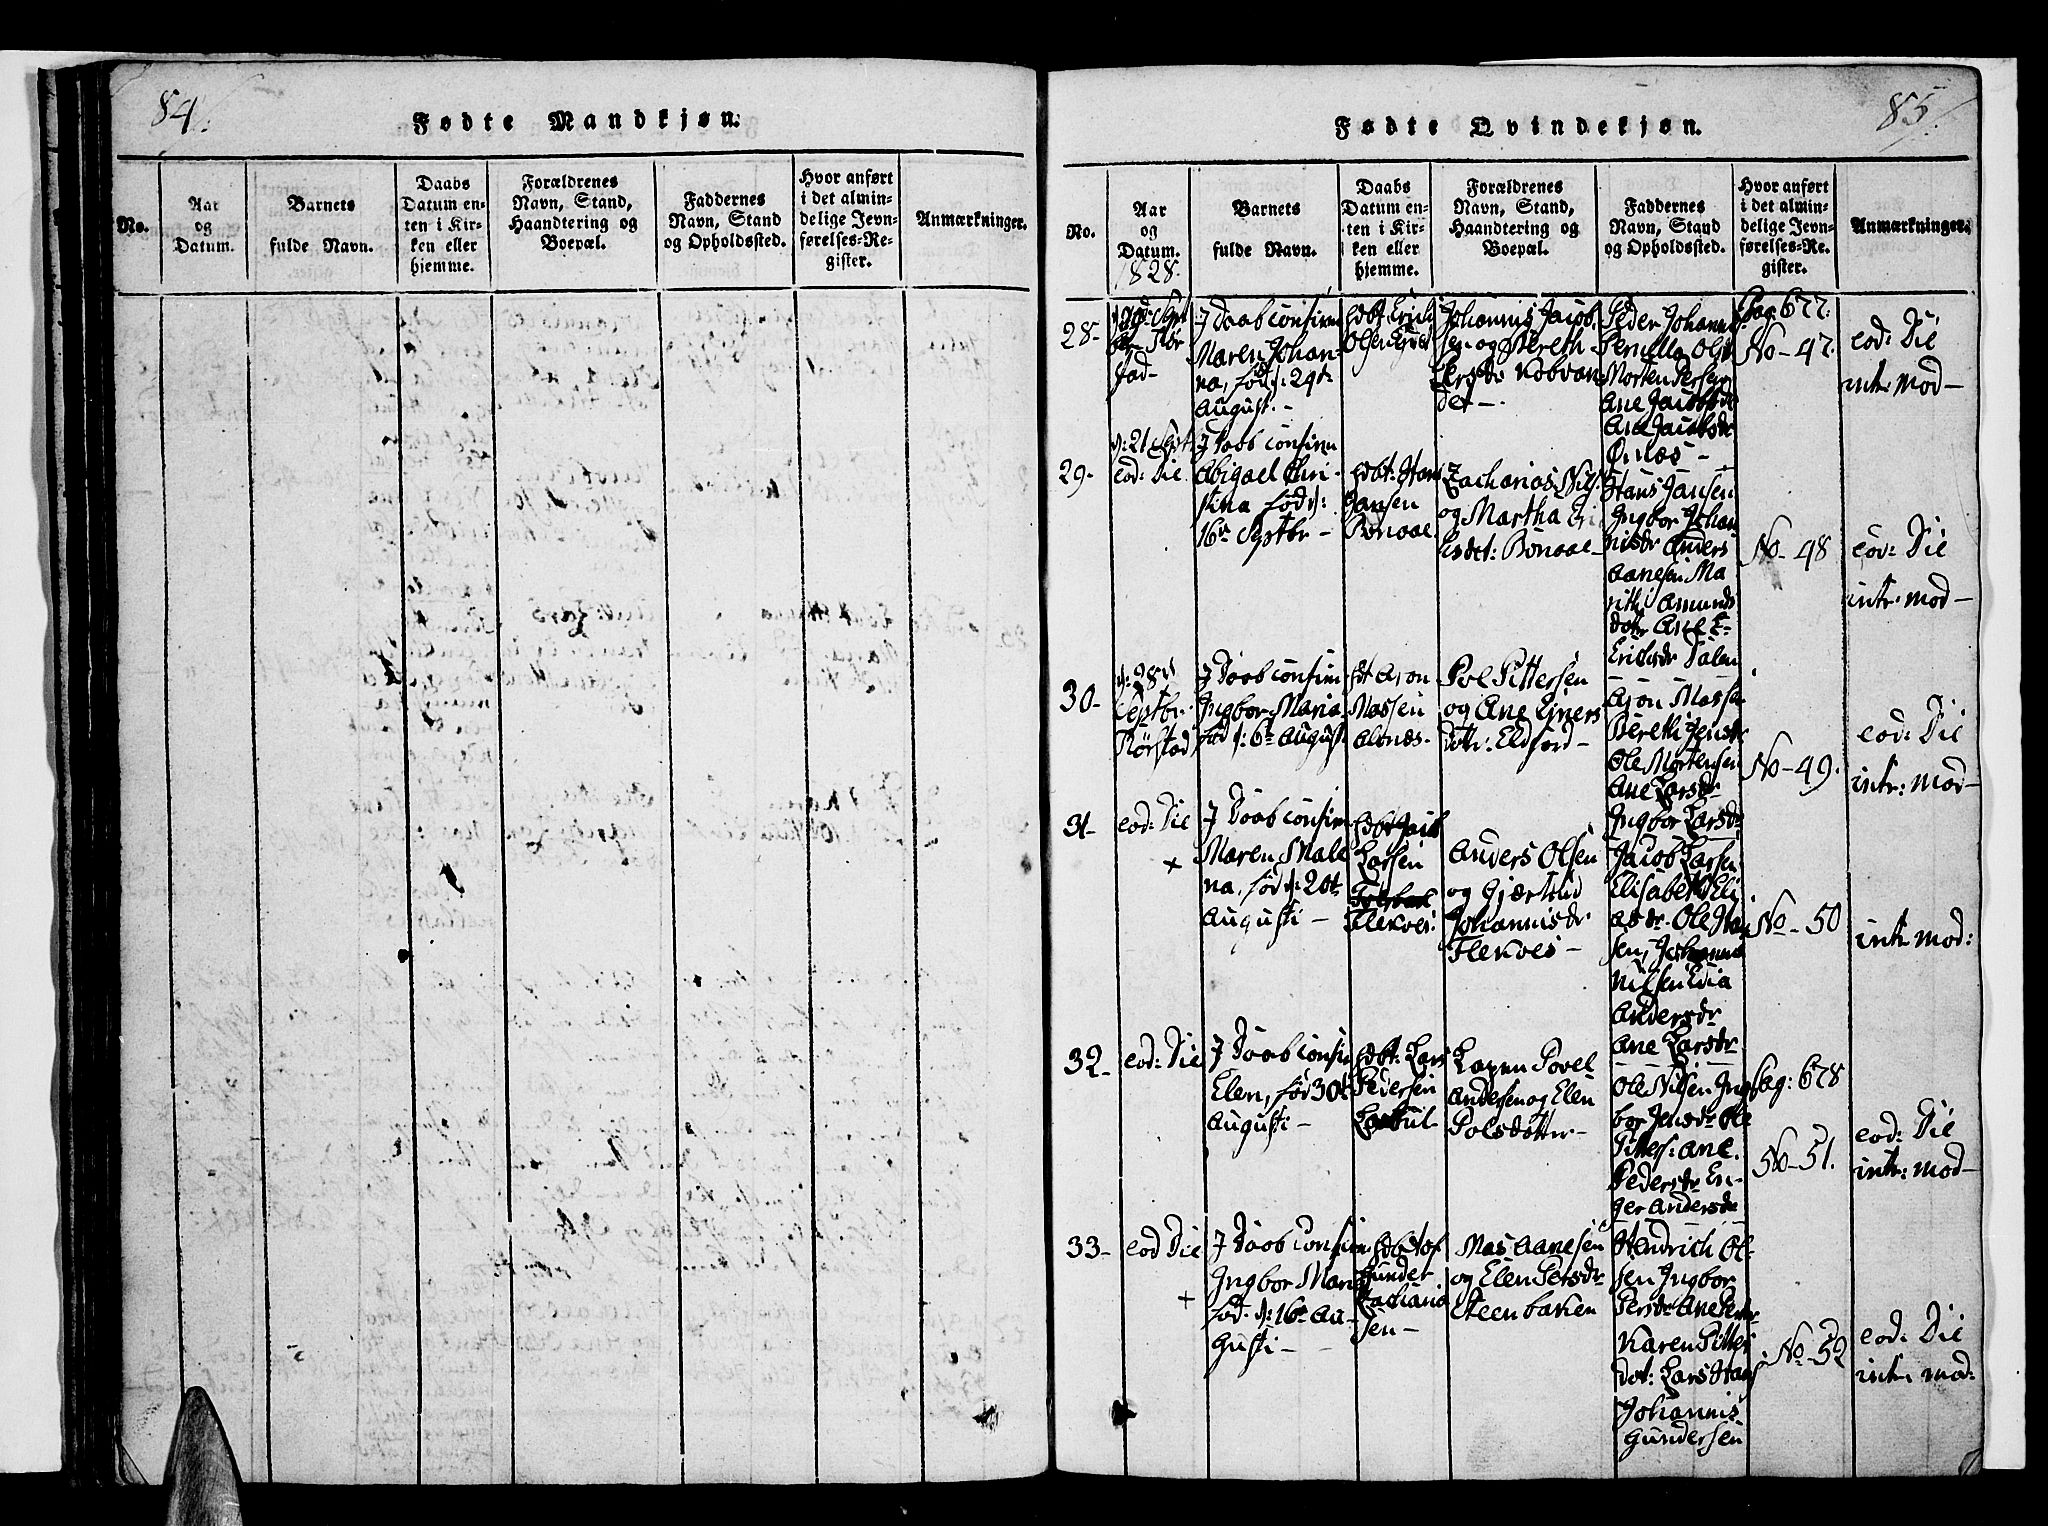 84.
Fødte Mandkjøn.
No.
Aar
og
Datum.
Barnets
fulde Navn.
Daabs
Datum en-
ten i Kir-
ken eller
hjemme.
Forældrenes
Navn, Stand,
Haandtering og
Boepæl.
Faddernes
Navn, Stand
og Opholdssted.
Hvor anført
i det almin-
delige Jevn-
førelses-Re-
gister.
Anmærkninger.
85.
Fødte Qvindekjøn.
No.
Aar
og
Datum.
1828.
Barnets
fulde Navn.
Daabs
Datum en-
ten i Kir-
ken eller
hjemme.
Forældrenes
Navn, Stand,
Haandtering og
Boepæl.
Faddernes
Navn, Stand
og Opholdssted.
Hvor anført
i det almin-
delige Jevn-
førelses-Re-
gister.
Anmærkninger.
28-
J Daab confirm
Maren Johan-
na, fød d: 29de
August. -
Hbt Erich
Olsen
Johannis Jacob
sen og Bereth
det -
Peder Johannis
Pernilla Ols
Morten Persen
Ane Jacobsdr
Ane Jacobsdr
Ørnæs -
Pag: 677:
No - 47.
eod: Die
intr: mod -
29-
d: 21 Sept
eod: Die
J Daab confirm
Abigael Chri-
stina fød d:
16de Septbr -
Hbt: Hans
Jansen
Bonaae
Zacharias Nils
og Martha Eri
Bonaae -
Hans Jansen
Ingbor Johan
nisdr Anders
Aanesen Ma
rithi Amunds
dotr Ane E-
Erichsdr
No - 48
eod: Die
intr: mod -
30-
d: 28de
Septbr.
Rørstad
J Daab confirm
Ingbor Maria
fød d: 6te August
Aron
Massen
Pol Pittersen
og Ane Einers
dotr: Eldfiord -
Aron Massen
Berethi Jensdr
Ole Mortensen
Ane Larsdr
Ingbor Larsdr
No - 49.
eod: Die
intr: mod -
31-
eod: Die
+
J Daab confirm
Maren Male
na, fød d: 20de
Augusti -
Hbt Jacob
Larsen
Flekoes:
Anders Olsen
og Gjertrud
Johannisdr
Flekoes -
Jacob Larsen
Elisabeth Eli
asdr. Ole Han
sen, Johannes
Nilsen
Andersdr
Ane Larsdr
No - 50
intr mod:
32-
eod: Die
J Daab confir
Elen, fød 30te
Augusti -
Hbt: Lars
Pedersen
Povel
Andersen og Elen
Polsdotter -
Ole Nilsen Ing
bor Jensdr Ole
Pitters: Ane
Pedersdr En-
ger Andersdr
Pag: 678
No - 51.
eod: Die
intr: mod -
33-
eod Die
+
J Daab confirm
Ingbor Maria
fød d: 16de Au-
gusti -
Gunder
Zacharia
sen -
Mas Aanesen
og Elen Persdr
Steenbakken
Hendrich Ol-
sen Ingbor
Persdr Ane Pers
Karen Pitters
dot: Lars Hans
Johannis
Gundersen
No - 52
eod: Die
intr. mod: